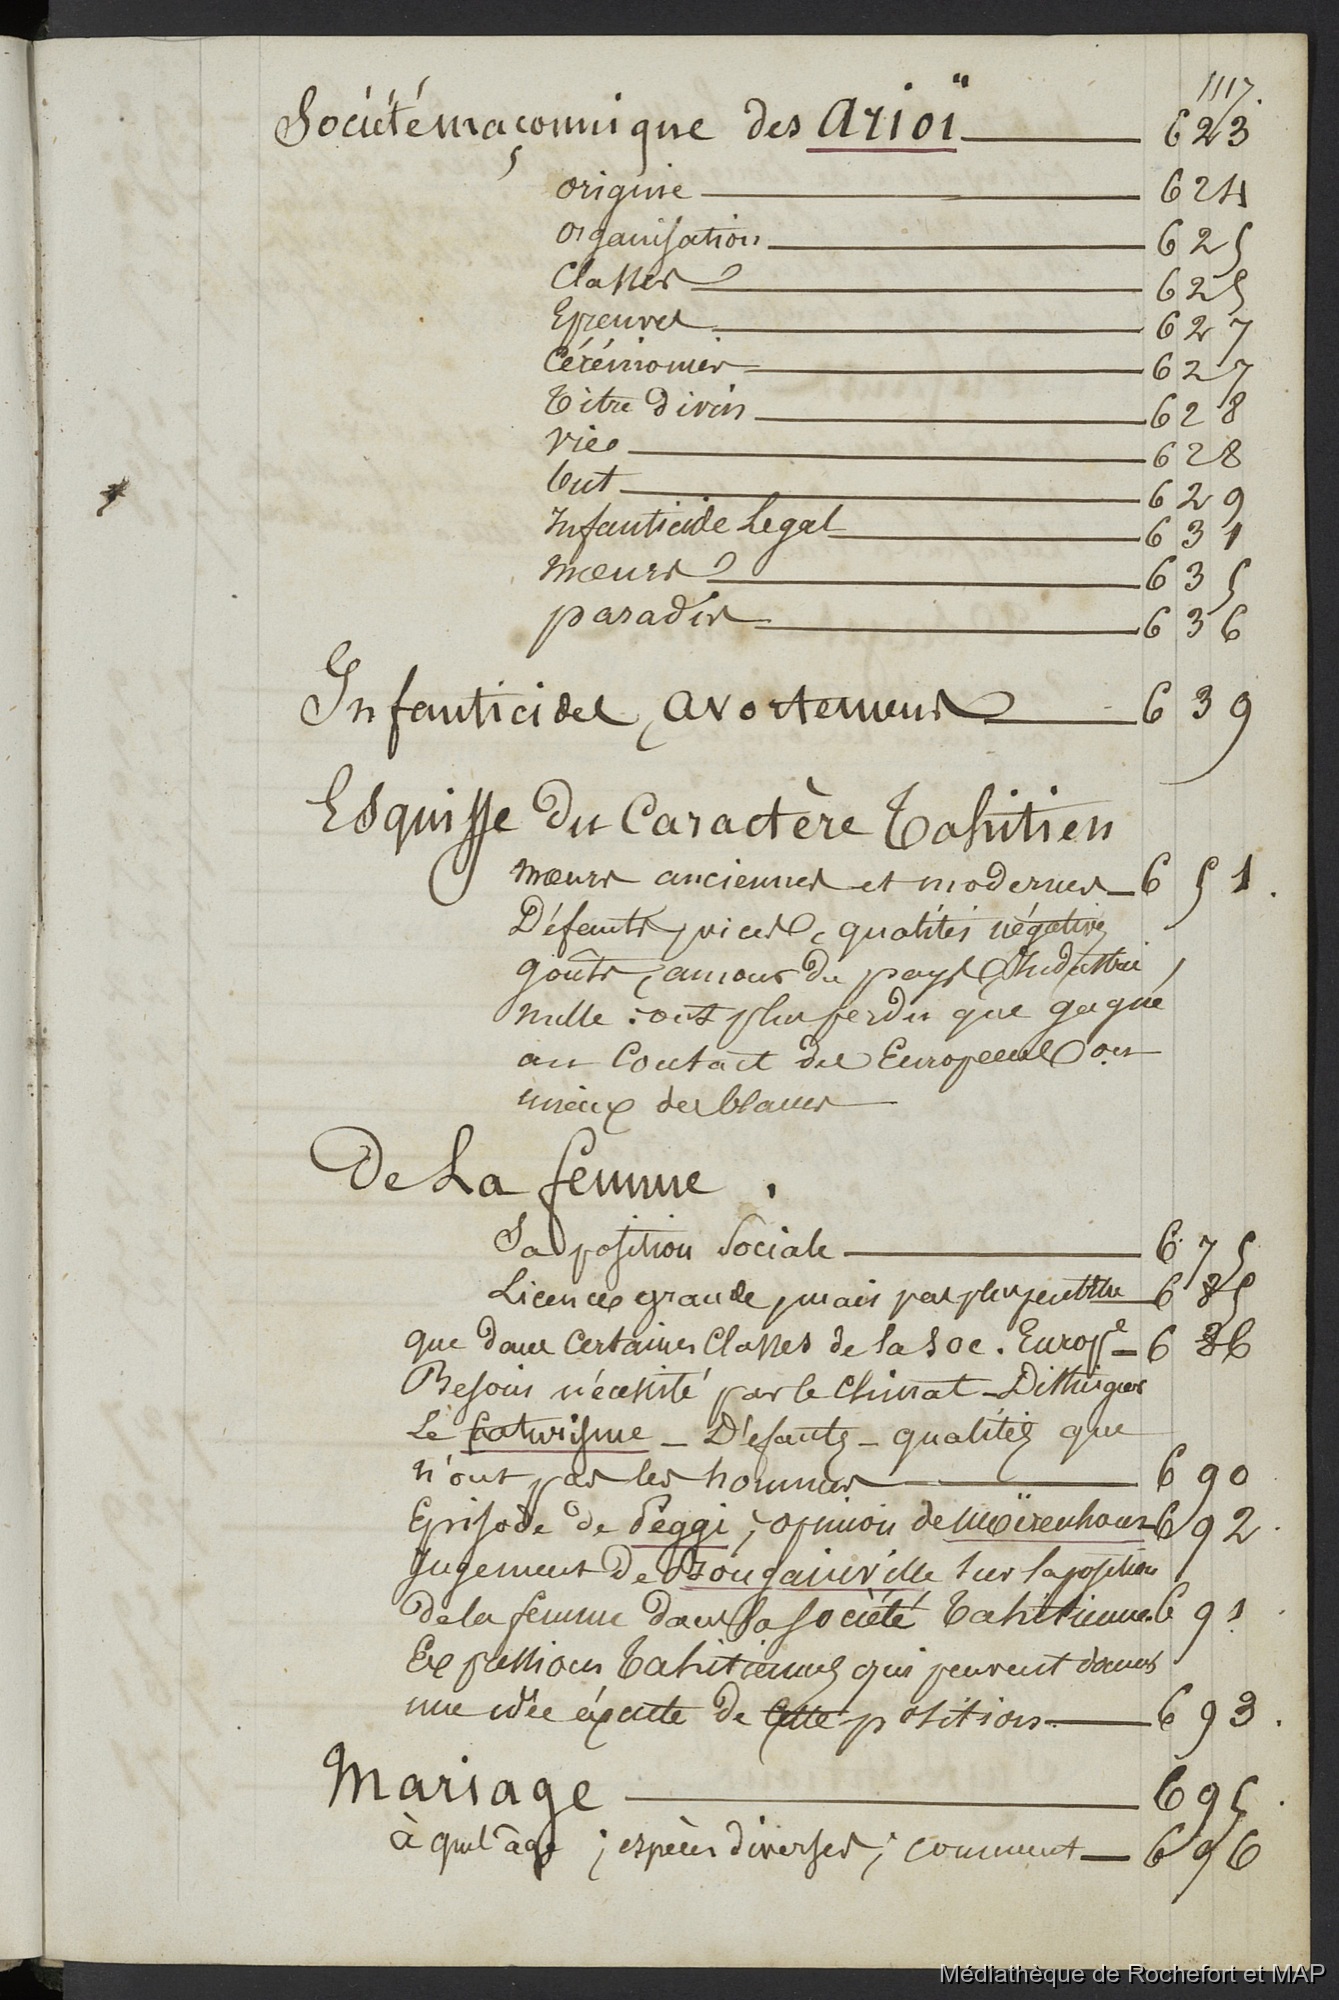 1117.
Société maçonnique des Arioï 623
origine 624
organisation 625
Classes 625
Epreuves 627
Cérémonies 627
Titre divin 628
vie 628
but 629
Infanticide Légal 631
mœurs 635
paradis 636
Infanticides, avortements 639
Esquisse du Caractère Tahitien
mœurs anciennes et modernes 651.
Défauts, vices, qualités négatives
goûts, amour du pays, Industrie
nulle : ont plus perdu que gagné
au Contact des Européens ou
mieux des blancs
De La femme.
Sa position Sociale 675
Licence grande, mais pas plus peut être 685
que dans certaines Classes de la Soc. Europe 686
Besoin nécessité par le Climat - Distinguer
Le - Défauts - qualités que
n'ont pas les hommes 690
Episode de Péggi ; opinion de Moërenhout 692.
Jugement de Bougainville sur la position
de la femme dans la société Tahitienne 691.
Expressions Tahitiennes qui peuvent donner
une idée exacte de cette position. 693.
Mariage 695.
à quel âge ; espèces diverses ; comment 696
Médiathèque de Rochefort et MAP